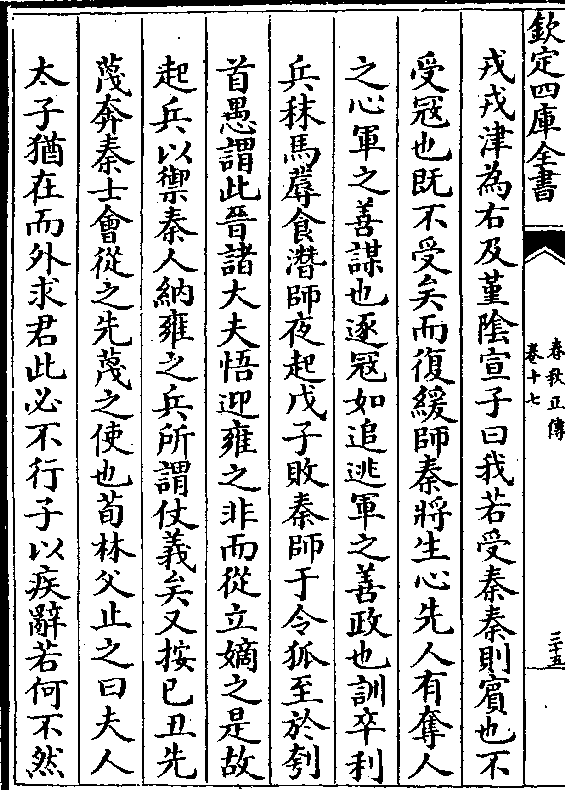 欽定四庫全書
春秋正傳
卷十七
三十五
戎戎津為右及堇陰宣子曰我若受秦秦則賔也不
受冦也既不受矣而復緩師秦將生心先人有奪人
之心軍之善謀也逐冦如追逃軍之善政也訓卒利
兵秣馬蓐食潛師夜起戊子敗秦師于令狐至於刳
首愚謂此晉諸大夫悟迎雍之非而從立嫡之是故
起兵以禦秦人納雍之兵所謂仗義矣又按已丑先
蔑奔秦士會從之先蔑之使也荀林父止之曰夫人
太子猶在而外求君此必不行子以疾辭若何不然